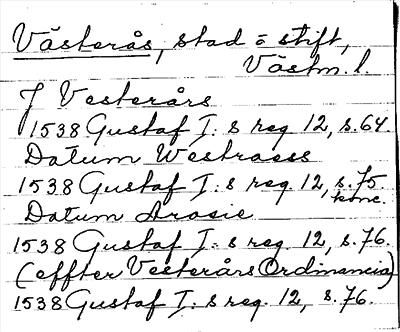 Västerås, stad o stift,
Västm. l.
J Vesterårs
1538 Gustaf I:s reg 12, s. 64.
Datum Westraess
1538 Gustaf I:s reg. 12, s. 75.
konc.
Datum Arosie
1538 Gustaf I:s reg. 12, s. 76.
(effter Vesterårs Ordinancia)
1538 Gustaf I:s reg. 12, s. 76.